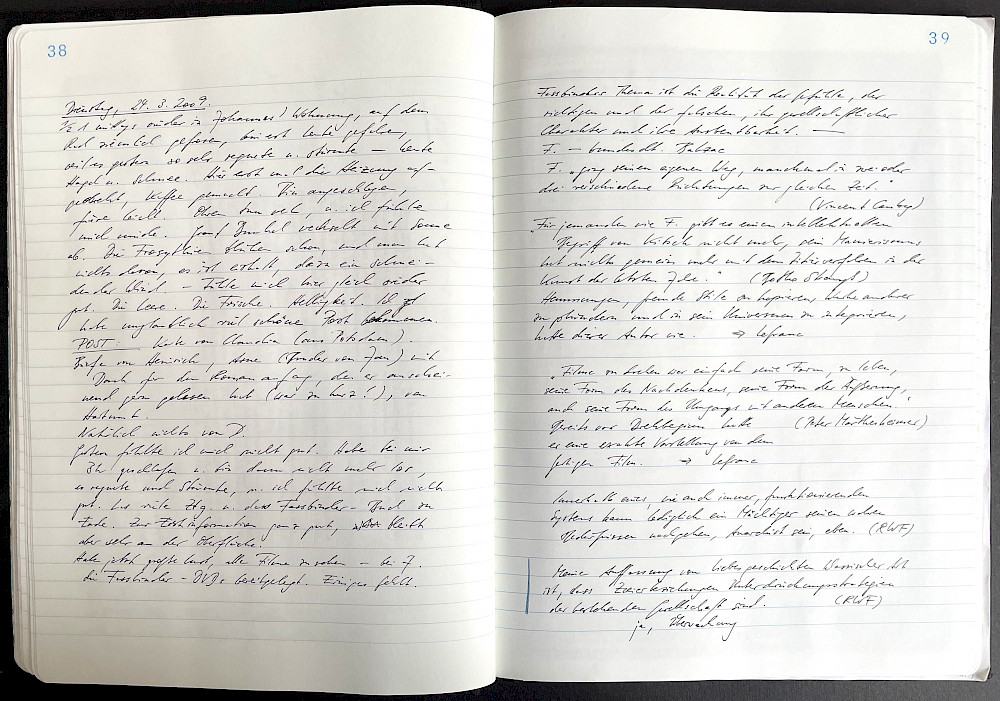 38
Dienstag, 24. 3. 2009.
½ 1 mittags wieder in Johannes' Wohnung, auf dem
Rad gefahren, erst heute gefahren,
weil es gestern so sehr regnete u. stürmte – heute
Hagel u. Schnee. Hier erst mal die Heizung auf-
gedreht, Kaffee gemacht. Bin angeschlagen,
friere leicht. Ohren tun weh, u. ich fühlte
mich müde. Grau Dunkel wechselt mit Sonne
ab. Die Forsythien blühen schon, und man hat
nichts davon, es ist eiskalt, dazu ein schnei-
dender Wind. – Fühle mich hier gleich wieder
gut. Die Leere. Die Frische. Helligkeit.
Habe unglaublich viel schöne Post bekommen.
POST: Karte von Claudia (aus Potsdam).
Briefe von Heinrich, Arne (Bruder von Jan) mit
Dank für den Romananfang, den er anschei-
nend gern gelesen hat (war zu kurz!), von
Hartmut.
Natürlich nichts von D.
Gestern fühlte ich mich nicht gut. Habe bei mir
geschlafen u. bin dann nicht mehr los,
es regnete und stürmte, u. ich fühlte mich nicht
gut. Las viele Ztg. u. das Fassbinder-Buch zu
Ende. Zur Erstinformation ganz gut, bleibt
aber sehr an der Oberfläche.
Habe jetzt große Lust, alle Filme zu sehen – bei J.
die Fassbinder-DVDs bereitgelegt. Einiges fehlt.
39
Fassbinders Thema ist die Realität der Gefühle, der
richtigen und der falschen, ihr gesellschaftlicher
Charakter und ihre Ausbeutbarkeit. —
F. – bundesdt. Balzac
F. „ging seinen eigenen Weg, manchmal in zwei oder
drei verschiedene Richtungen zur gleichen Zeit."
(Vincent Canby)
„Für jemanden wie F. gibt es einen intellektuellen
Begriff von Kitsch nicht mehr, sein Manierismus
hat nichts gemein mehr mit dem Zitierverfahren in der
Kunst der letzten Jahre." (Botho Strauß)
Hemmungen, fremde Stile zu kopieren, Werke anderer
zu plündern und in sein Universum zu integrieren,
hatte dieser Autor nie. →
„Filme zu drehen war einfach seine Form, zu leben,
seine Form des Nachdenkens, seine Form der Äußerung,
auch seine Form des Umgangs mit anderen Menschen."
Bereits vor Drehbeginn hatte (Peter Märthesheimer)
er eine exakte Vorstellung von dem
fertigen Film. →
Innerhalb eines, wie auch immer, funktionierenden
Systems kann lediglich ein Mächtiger seinen wahren
Bedürfnissen nachgehen, Anarchist sein, eben. (RWF)
Meine Auffassung von Liebesgeschichten klassischer Art
ist, dass Zweierbeziehungen Unterdrückungsstrategien
der bestehenden Gesellschaft sind. (RWF)
ja, Überwachung